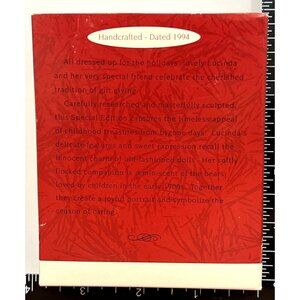 Handcrafted - Dated 1994
All dressed up for the holidays, lovely Lucinda
and her very special friend celebrate the cherished
tradition of gift giving.
Carefully researched and masterfully sculpted,
this Special Edition captures the timeless appeal
of childhood treasures from bygone days. Lucinda's
delicate features and sweet expression recall the
innocent charm of old-fashioned dolls. Her softly
flocked companion is reminiscent of the bears
loved by children in the early 1900s. Together
they create a joyful portrait and symbolize the
season of caring.